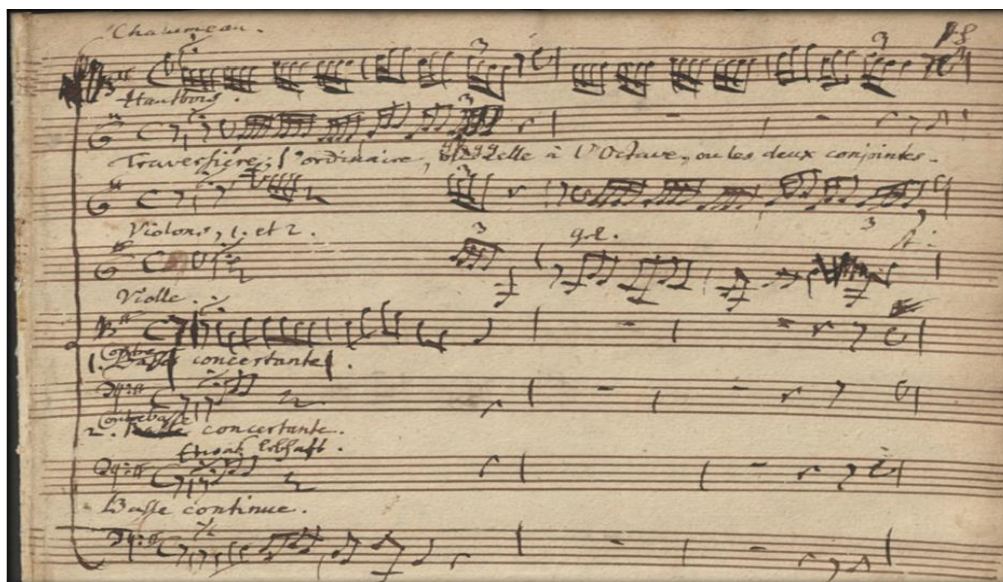 Chalumeau.
3 3
Hautbois.
3
Traversiére; l'ordinaire, à l'Octave, ou les deux conjointes.
3
Violons, 1. et 2.
3
Violle.
1. Contre Basse concertante.
2. Contrebasse concertante.
Basse continue.